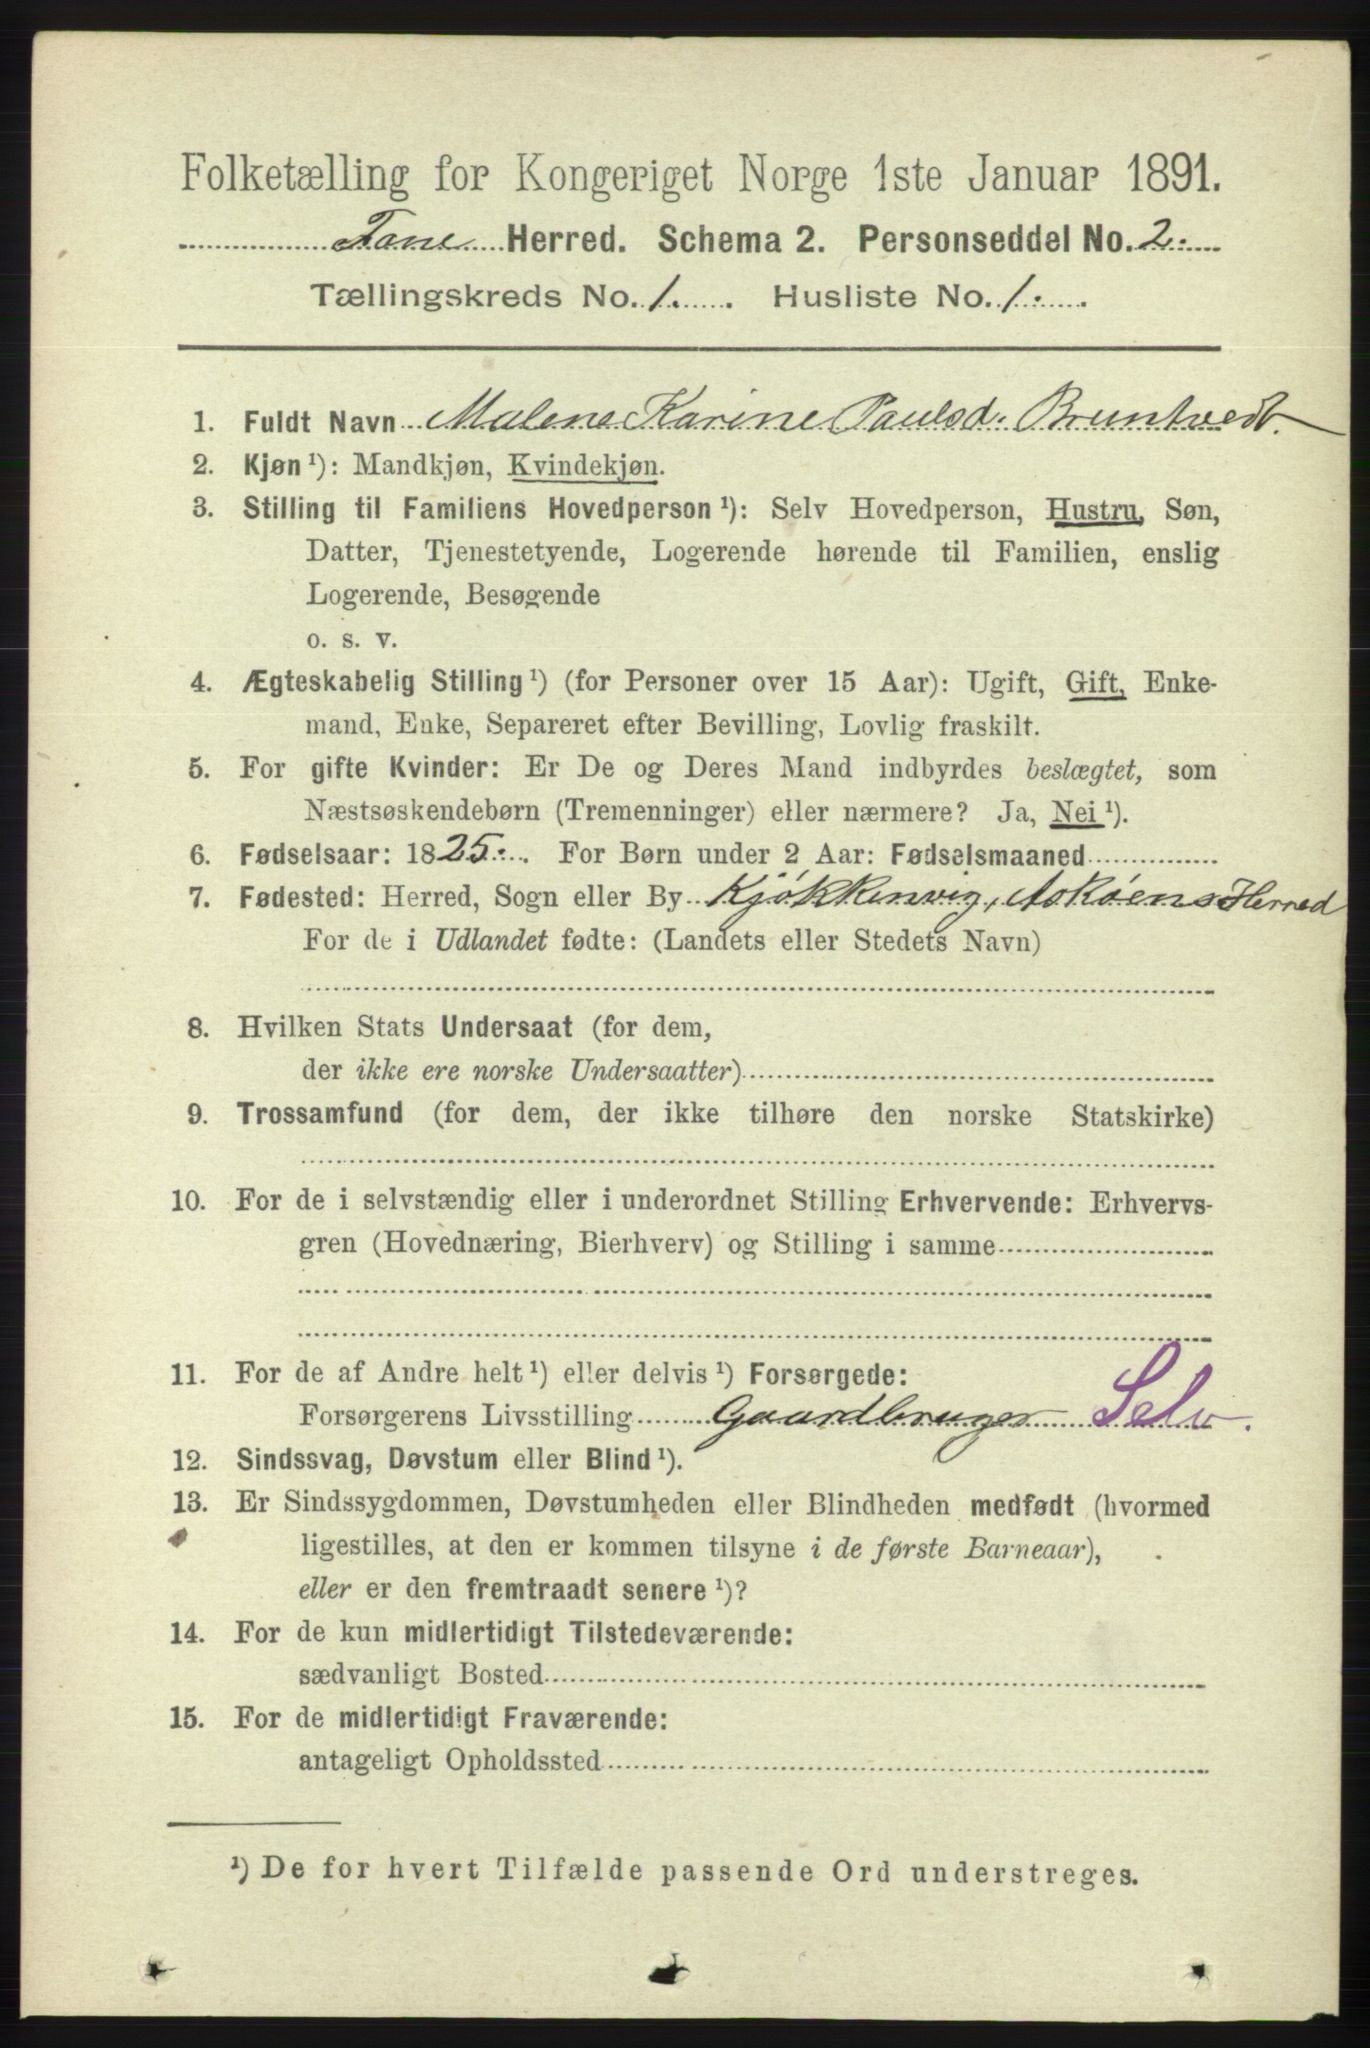 Folketælling for Kongeriget Norge 1ste Januar 1891.
Fane Herred. Schema 2. Personseddel No. 2.
Tællingskreds No. 1. Husliste No. 1.
1. Fuldt Navn Malene Karine Paulsd. Bruntvedt.
2. Kjøn ¹): Mandkjøn, Kvindekjøn.
3. Stilling til Familiens Hovedperson ¹): Selv Hovedperson, Hustru, Søn,
Datter, Tjenestetyende, Logerende hørende til Familien, enslig
Logerende, Besøgende
o. s. v.
4. Ægteskabelig Stilling ¹) (for Personer over 15 Aar): Ugift, Gift, Enke-
mand, Enke, Separeret efter Bevilling, Lovlig fraskilt.
5. For gifte Kvinder: Er De og Deres Mand indbyrdes beslægtet, som
Næstsøskendebørn (Tremenninger) eller nærmere? Ja, Nei ¹).
6. Fødselsaar: 1825. For Børn under 2 Aar: Fødselsmaaned
7. Fødested: Herred, Sogn eller By Kjøkkenvig, Askøens Herred
For de i Udlandet fødte: (Landets eller Stedets Navn)
8. Hvilken Stats Undersaat (for dem,
der ikke ere norske Undersaatter)
9. Trossamfund (for dem, der ikke tilhøre den norske Statskirke)
10. For de i selvstændig eller i underordnet Stilling Erhvervende: Erhvervs-
gren (Hovednæring, Bierhverv) og Stilling i samme
11. For de af Andre helt ¹) eller delvis ¹) Forsørgede:
Forsørgerens Livsstilling Gaardbruger Selv.
12. Sindssvag, Døvstum eller Blind ¹).
13. Er Sindssygdommen, Døvstumheden eller Blindheden medfødt (hvormed
ligestilles, at den er kommen tilsyne i de første Barneaar),
eller er den fremtraadt senere ¹)?
14. For de kun midlertidigt Tilstedeværende:
sædvanligt Bosted
15. For de midlertidigt Fraværende:
antageligt Opholdssted
¹) De for hvert Tilfælde passende Ord understreges.